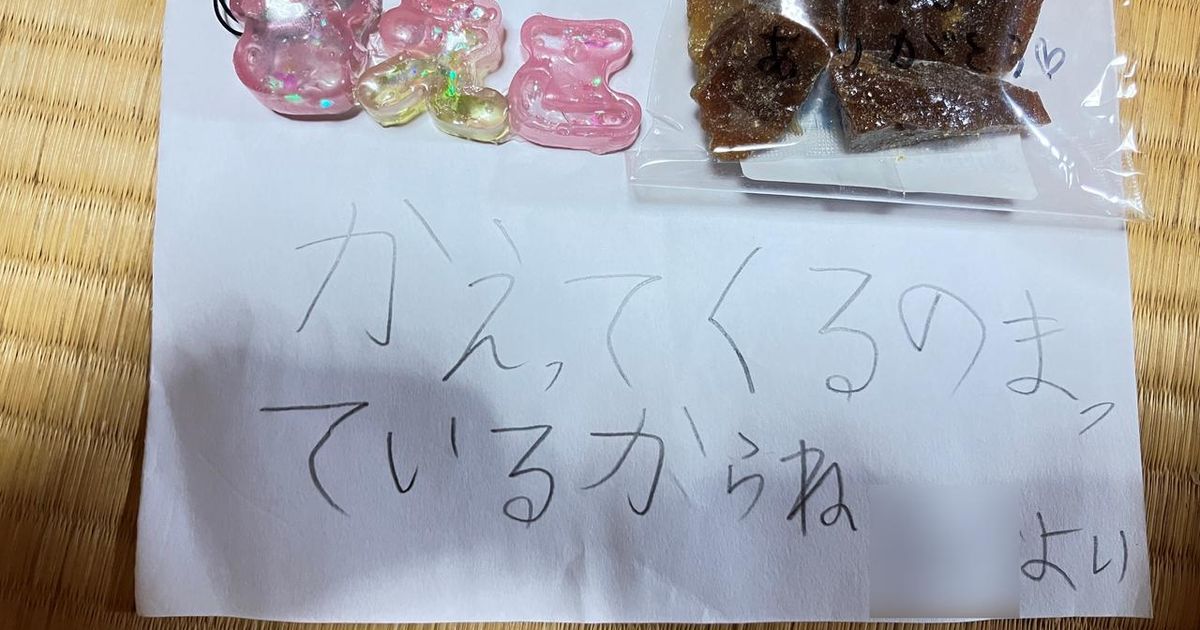 ありがとう♡
かえってくるのまっ
ているからね
より